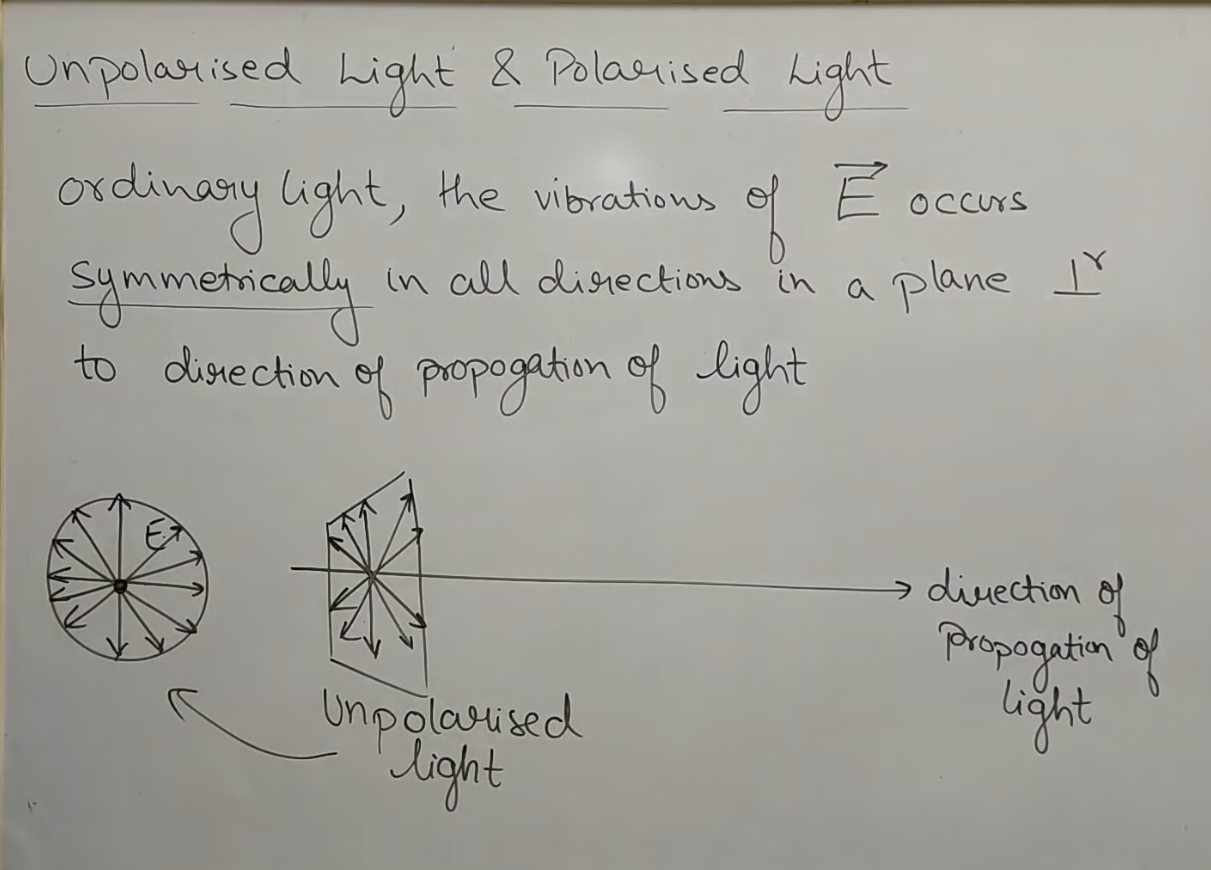 Unpolarised Light & Polarised Light
ordinary light, the vibrations of E⃗ occurs
symmetrically in all directions in a plane ⊥ʳ
to direction of propogation of light
E
direction of
propogation of
light
Unpolarised
light